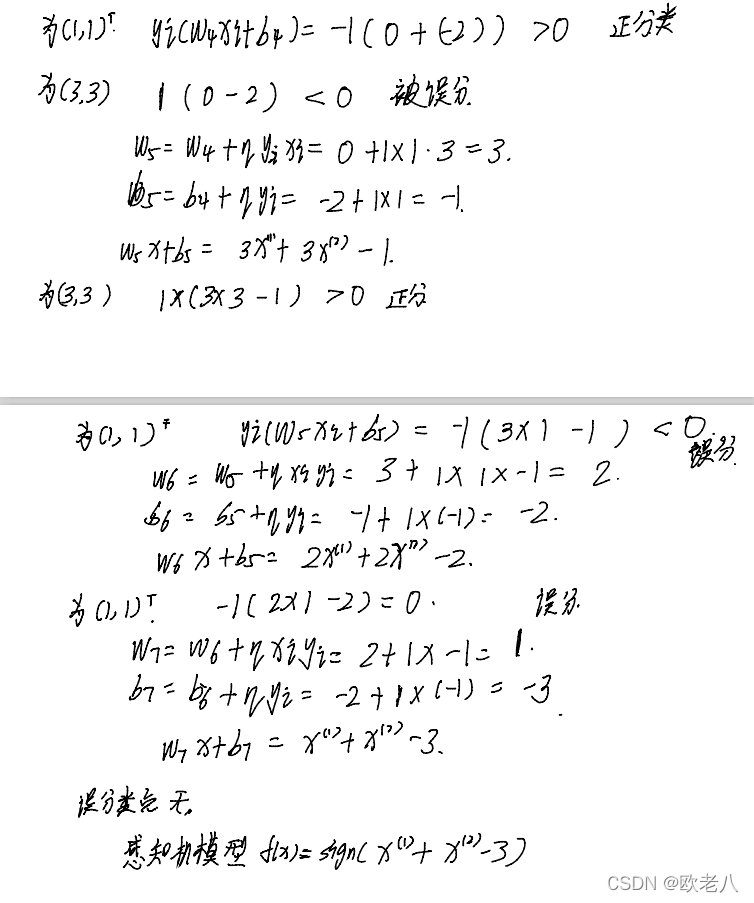 为(1,1)ᵀ yi(w4xi+b4)=-1(0+(-2))>0 正分类
为(3,3) 1(0-2)<0 被误分
w5=w4+ηyixi=0+1×1·3=3.
b5=b4+ηyi=-2+1×1=-1.
w5x+b5=3x⁽¹⁾+3x⁽²⁾-1.
为(3,3) 1×(3×3-1)>0 正分
为(1,1)ᵀ yi(w5xi+b5)=-1(3×1-1)<0. 误分
w6=w5+ηxiyi=3+1×1×-1=2.
b6=b5+ηyi=-1+1×(-1)=-2.
w6x+b5=2x⁽¹⁾+2x⁽²⁾-2.
为(1,1)ᵀ. -1(2×1-2)=0. 误分
w7=w6+ηxiyi=2+1×-1=1.
b7=b6+ηyi=-2+1×(-1)=-3.
w7x+b7=x⁽¹⁾+x⁽²⁾-3.
误分类点 无。
感知机模型 f(x)=sign(x⁽¹⁾+x⁽²⁾-3)
CSDN @欧老八